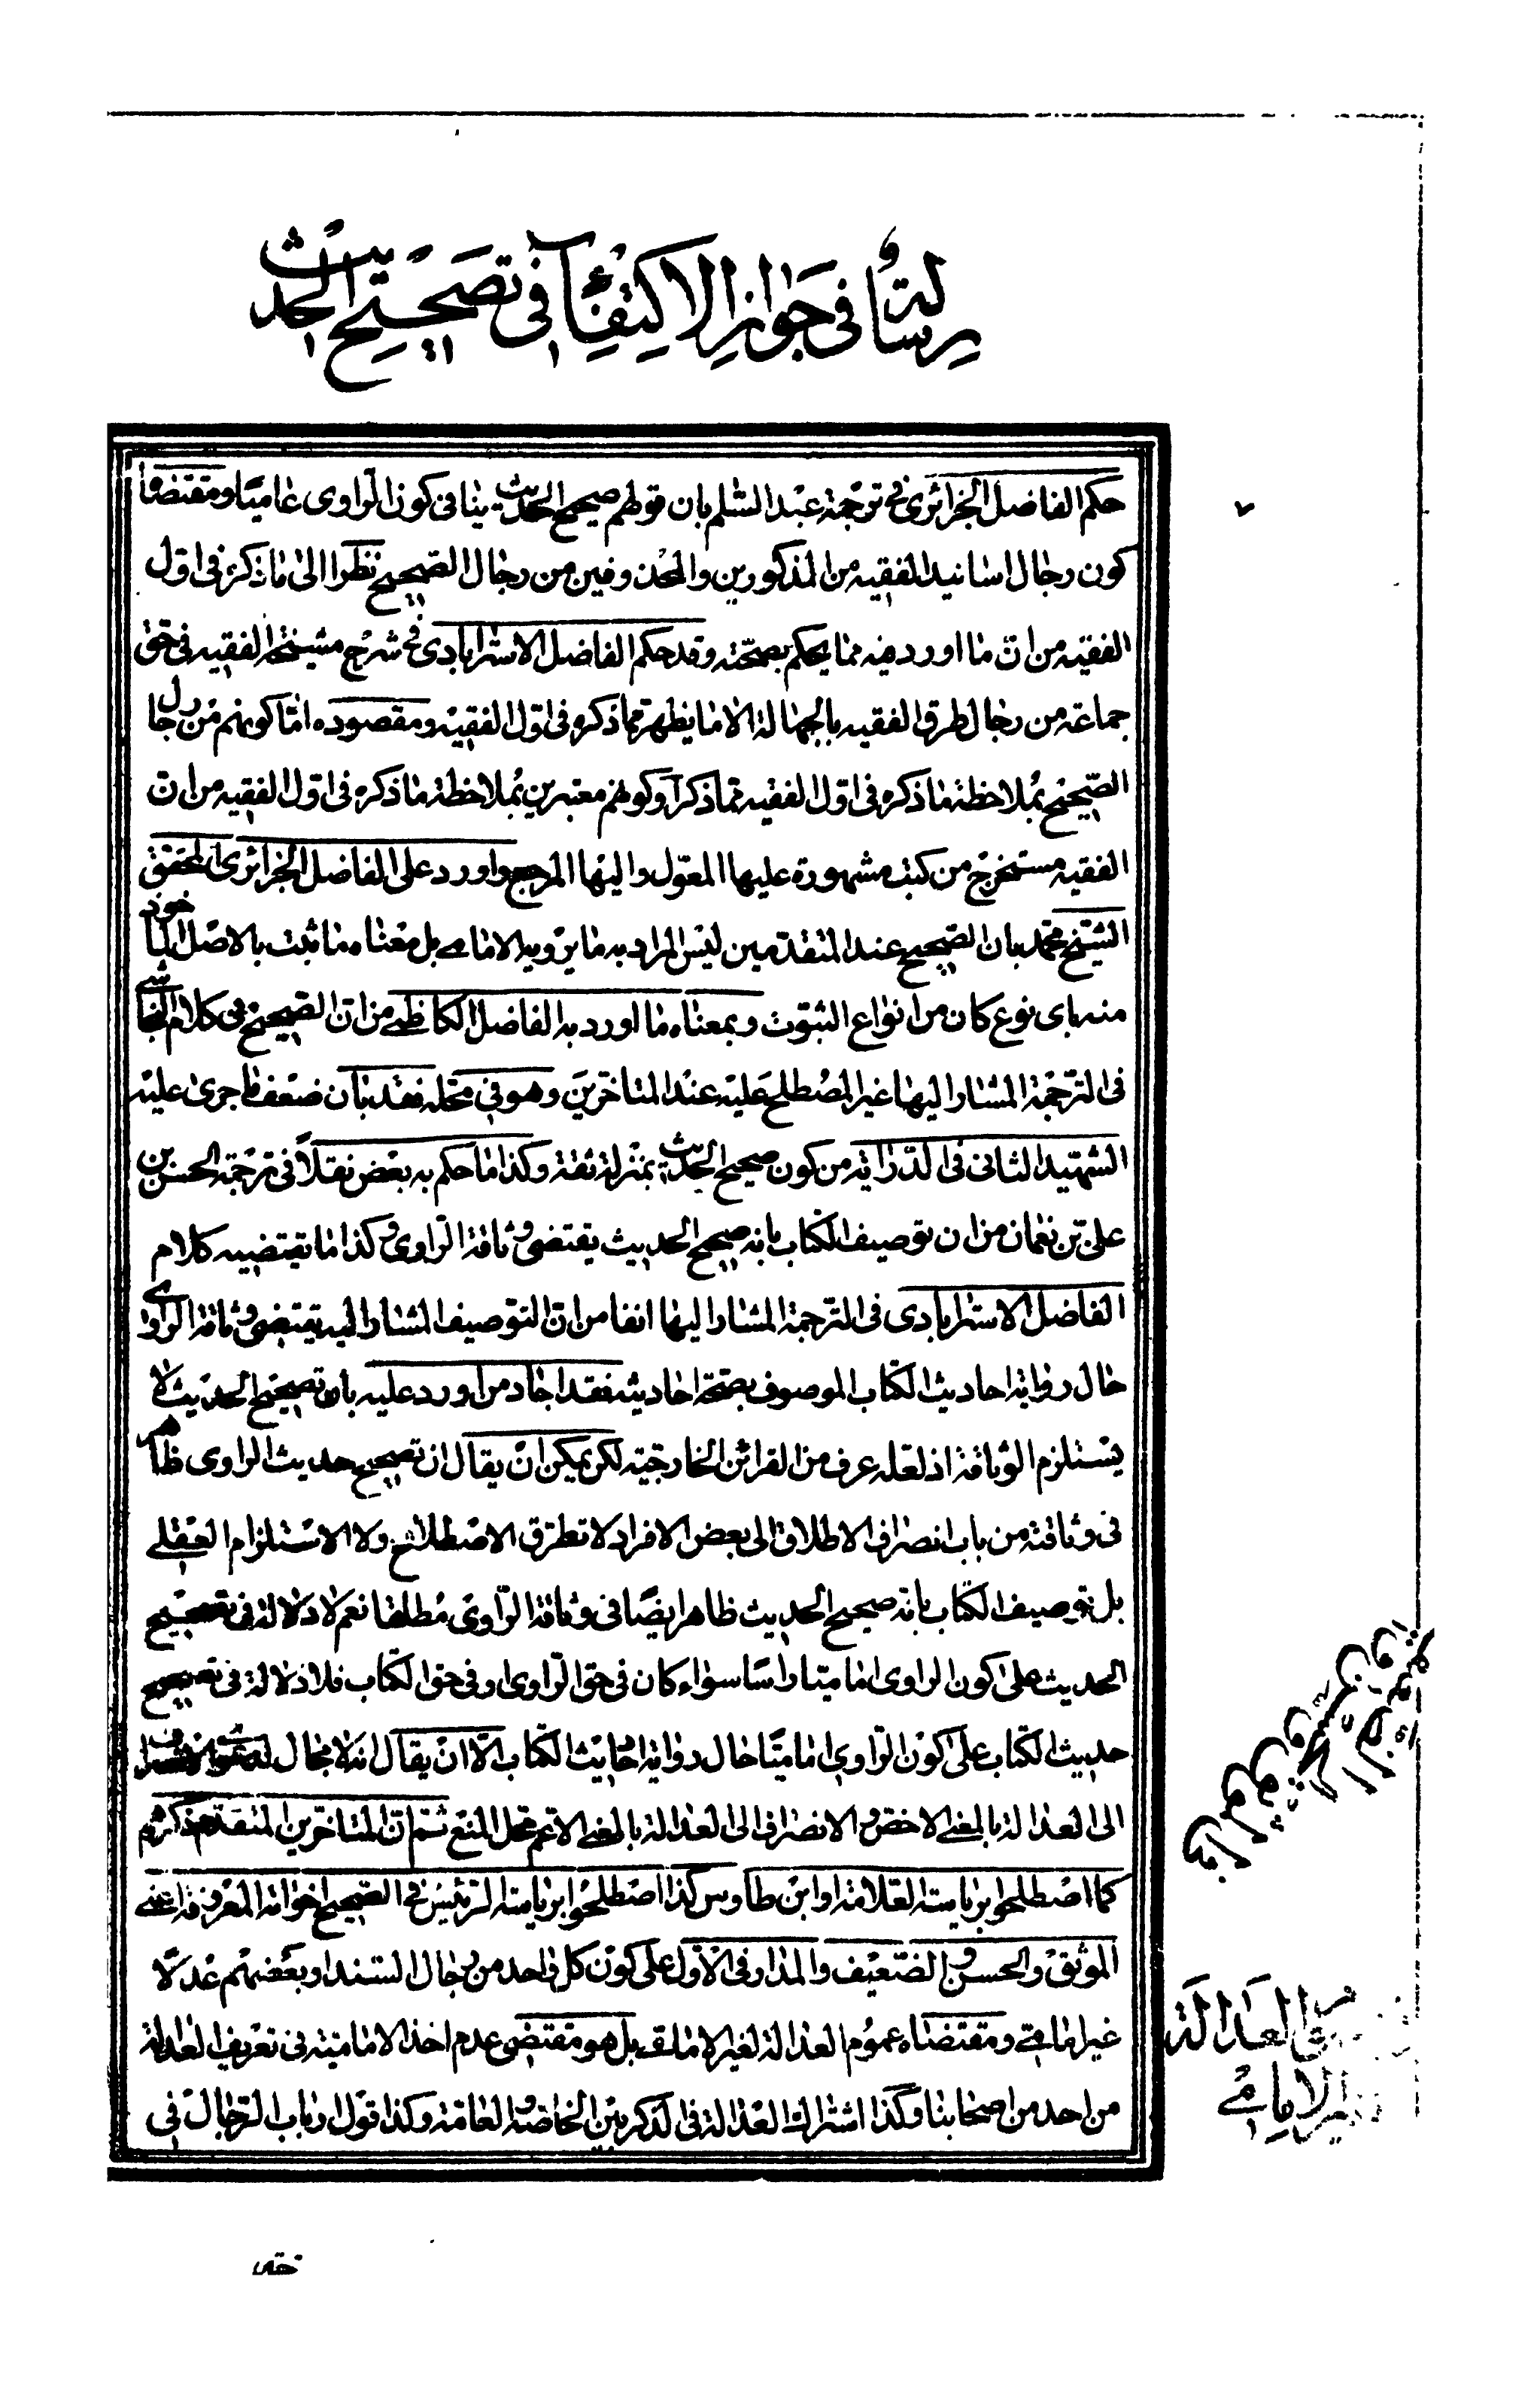 رسالة في جواز الاكتفاء في تصحيح الحديث
حكم الفاضل الجزائري في ترجمة عبد السلم بان قولهم صحيح الحديث ينافى كون الراوى عاميّا ومقتضاه
كون رجال اسانيد الفقيه من المذكورين والمحذوفين من رجال الصحيح نظرا الى ما ذكره فى اول
الفقيه من ان ما اورد فيه مما يحكم بصحته وقد حكم الفاضل الاسترابادى فى شرح مشيخة الفقيه فى حق
جماعة من رجال طرق الفقيه بالجهالة الا ما يظهر مما ذكره فى اول الفقيه ومقصوده اما كونهم من رجال
الصحيح بملاحظة ما ذكره فى اول الفقيه مما ذكر او كونهم معتبرين بملاحظة ما ذكره فى اول الفقيه من ان
الفقيه مستخرج من كتب مشهورة عليها المعول واليها المرجع واورد على الفاضل الجزائرى المحقق
الشيخ محمد بان الصحيح عند المتقدمين ليس المراد به ما يرويه الامامى بل معناه ما ثبت بالاصل الماخوذ
منه باى نوع كان من انواع الثبوت وبمعناه ما اورد به الفاضل الكاظمى من ان الصحيح فى كلام النجاشى
فى الترجمة المشار اليها غير المصطلح عليه عند المتاخرين وهو فى محله فقد بان ضعف ما جرى عليه
الشهيد الثانى فى الدراية من كون صحيح الحديث بمنزلة ثقة وكذا ما حكم به بعض نقلا فى ترجمة الحسن بن
على بن نعمان من ان توصيف الكتاب بانه صحيح الحديث يقتضى وثاقة الراوى وكذا ما يقتضيه كلام
الفاضل الاسترابادى فى الترجمة المشار اليها انفا من ان التوصيف المشار اليه يقتضى وثاقة الراوى
حال رواية احاديث الكتاب الموصوف بصحة احاديثه فقد اجاد من اورد عليه بان تصحيح الحديث لا
يستلزم الوثاقة اذ لعله عرف من القرائن الخارجية لكن يمكن ان يقال ان تصحيح حديث الراوى ظاهر
فى وثاقته من باب انصراف الاطلاق الى بعض الافراد لا تطرق الاصطلاح ولا الاستلزام العقلى
بل توصيف الكتاب بانه صحيح الحديث ظاهر ايضا فى وثاقة الراوى مطلقا نعم لا دلالة فى تصحيح
الحديث على كون الراوى اماميا راسا سواء كان فى حق الراوى او فى حق الكتاب فلا دلالة فى تصحيح
حديث الكتاب على كون الراوى اماميا حال رواية احاديث الكتاب الا ان يقال انه لا مجال
الى العدالة بالمعنى الاخص والانصراف الى العدالة بالمعنى الاعم محل المنع ثم ان المتاخرين المتقدم ذكرهم
كما اصطلحوا برياسة العلامة او ابن طاوس كذا اصطلحوا برياسة الرئيس فى الصحيح اخواته المعروفة اعنى
الموثق والحسن والضعيف والمدار فى الاول على كون كل واحد من رجال السند او بعضهم عدلا
غير امامى ومقتضاه عموم العدالة لغير الامامى بل هو مقتضى عدم اخذ الامامية فى تعريف العدالة
من احد من اصحابنا وكذا اشتراك العدالة فى الذكر بين الخاصة والعامة وكذا قول ارباب الرجال فى
العدالة
الامامى
حق